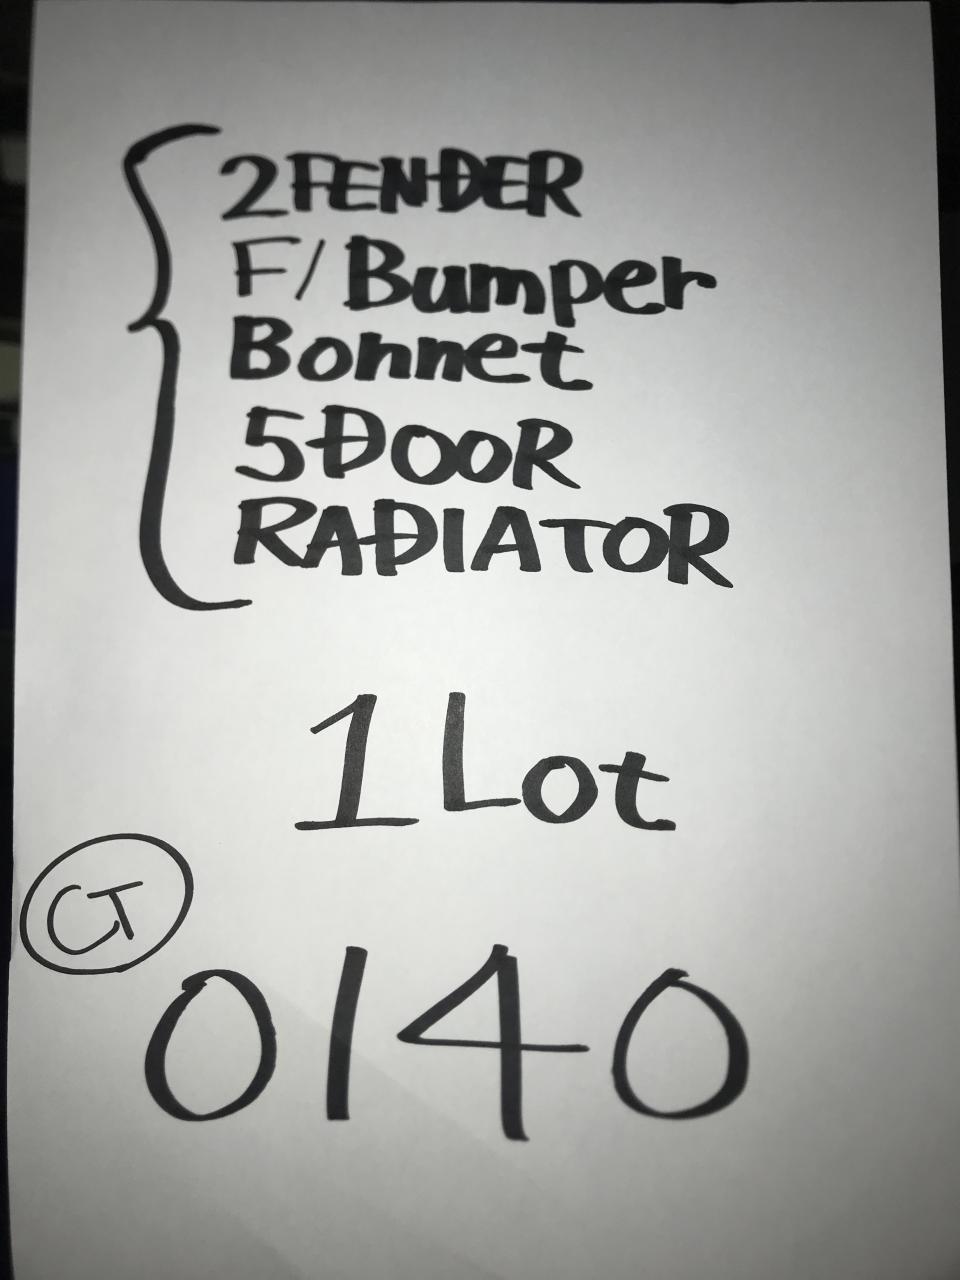 2 FENDER
F/Bumper
Bonnet
5 DOOR
RADIATOR
1 Lot
CT
0140